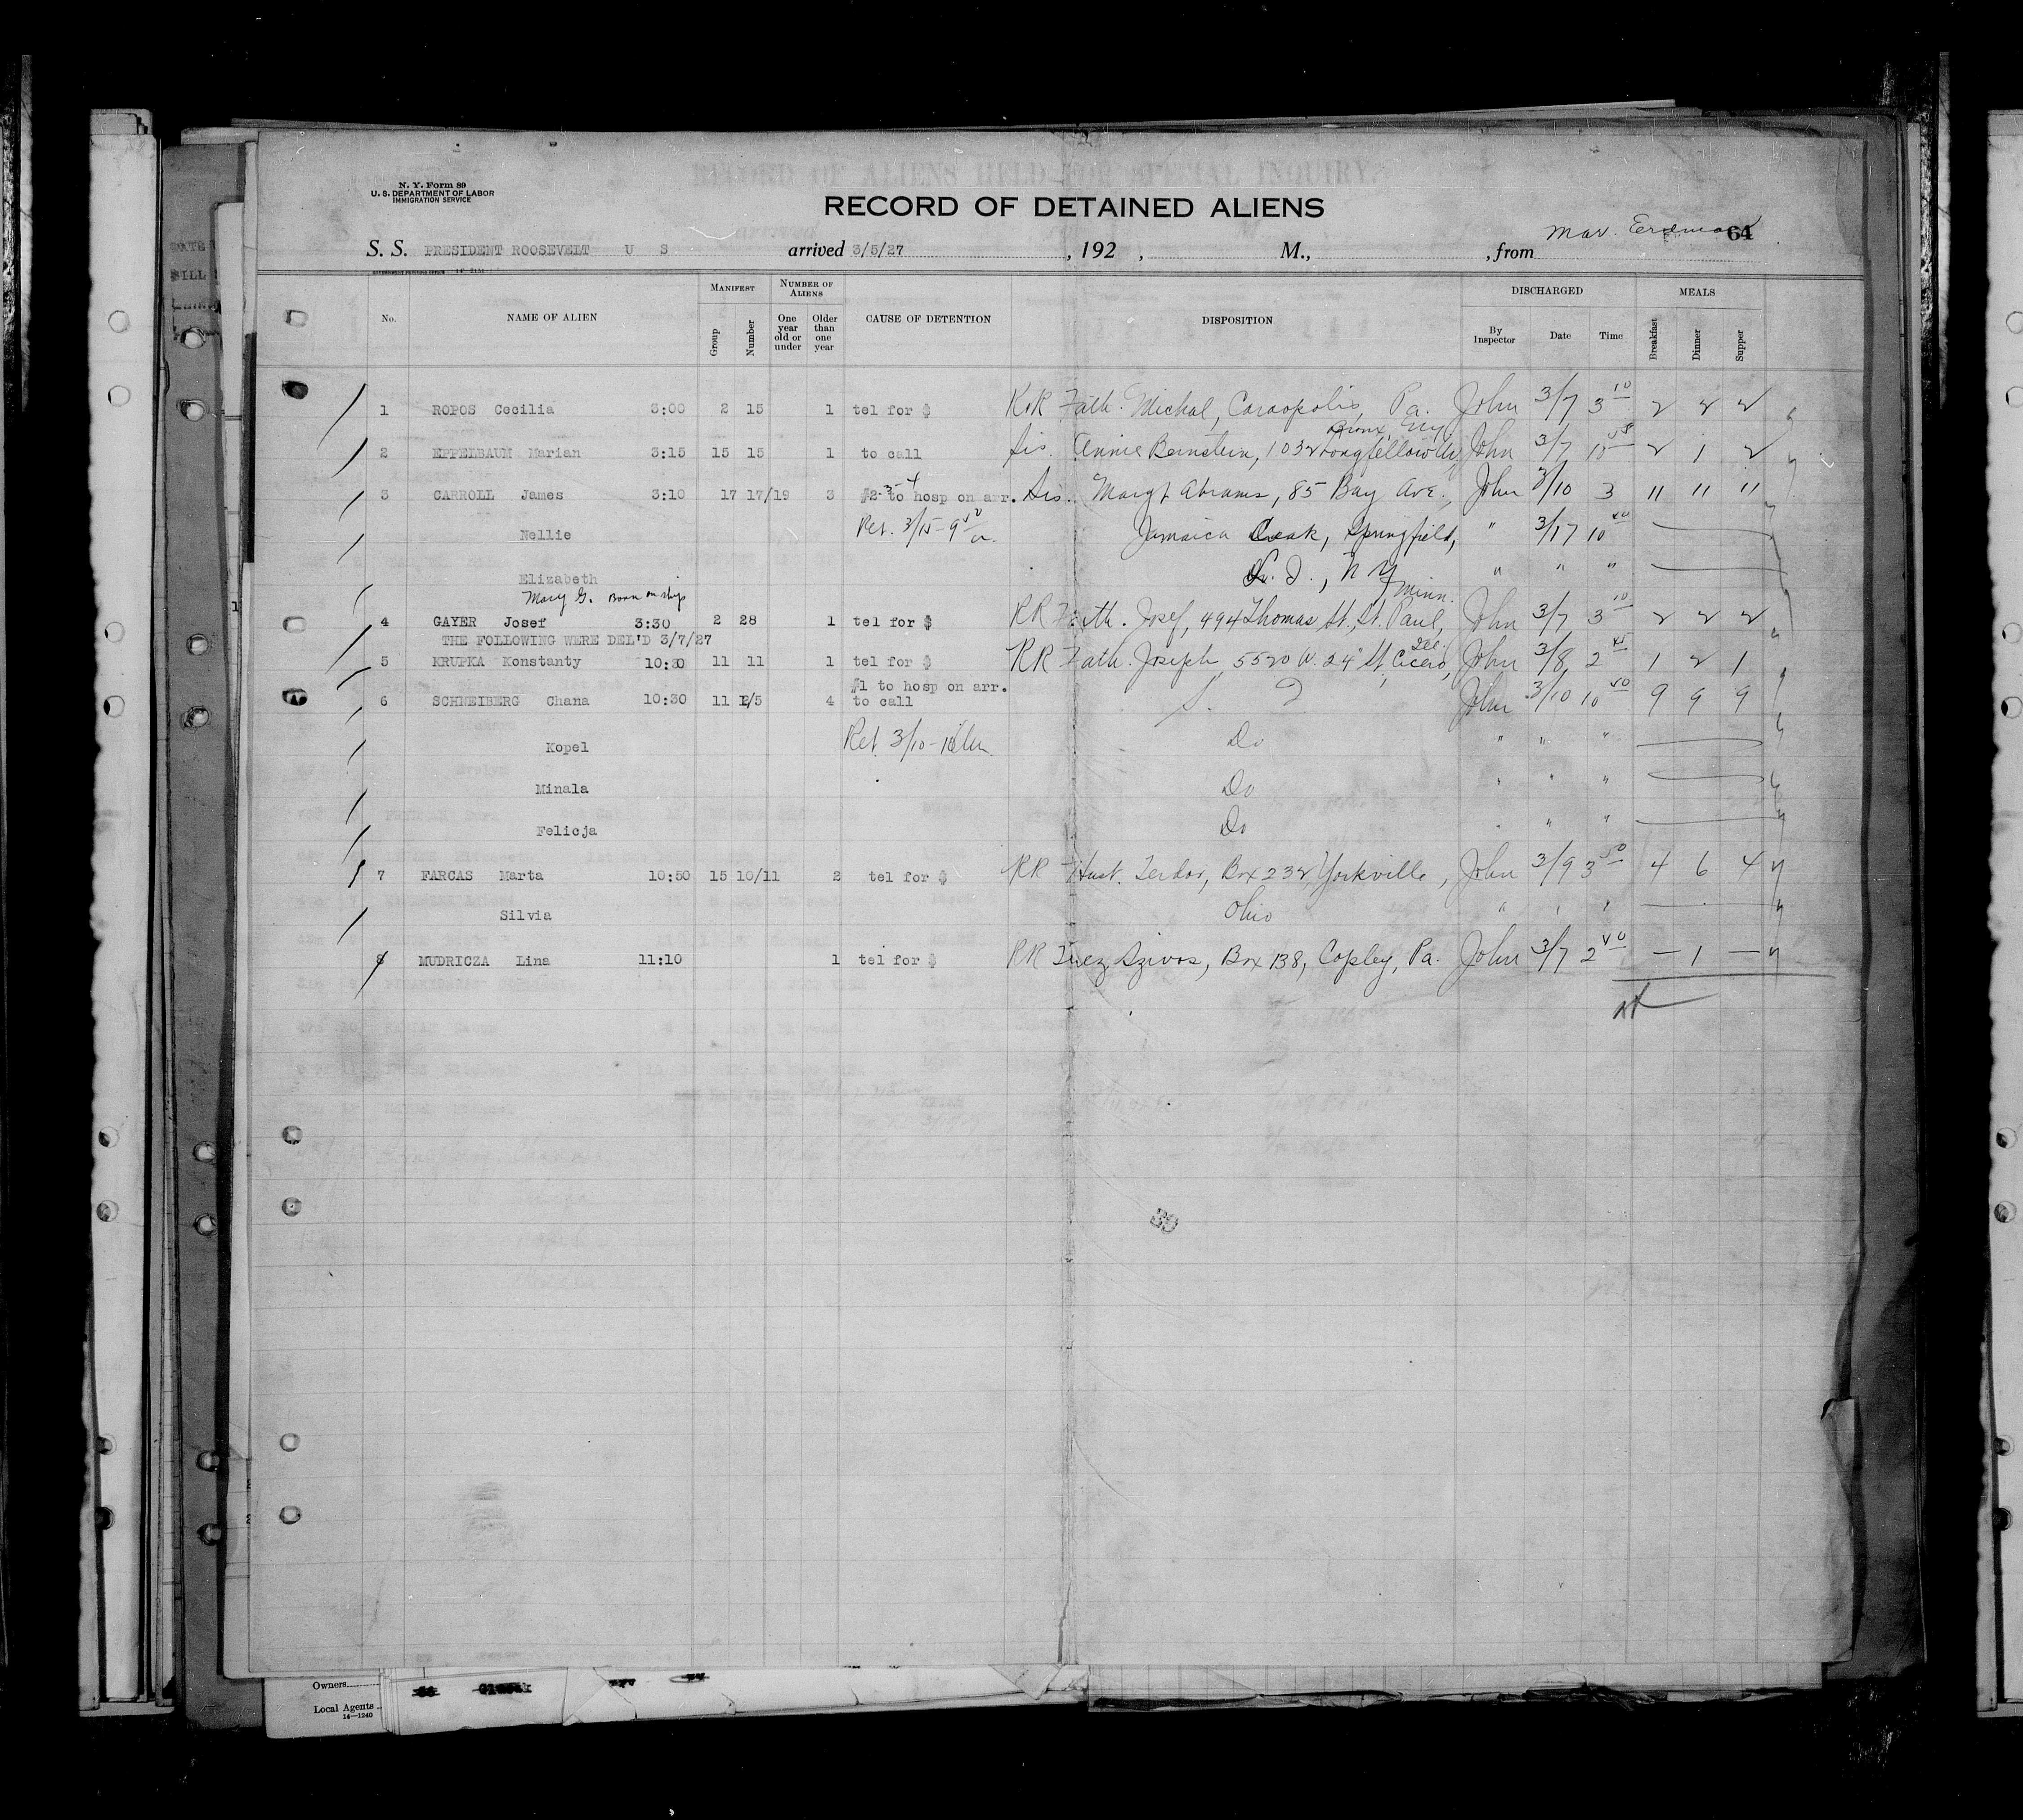 N. Y. Form 89
U. S. DEPARTMENT OF LABOR
IMMIGRATION SERVICE
RECORD OF ALIENS HELD FOR SPECIAL INQUIRY.
RECORD OF DETAINED ALIENS
64
S. S. PRESIDENT ROOSEVELT U S arrived 3/5/27, 192 , M., , from
No. NAME OF ALIEN MANIFEST Group Number NUMBER OF ALIENS One year old or under Older than one year CAUSE OF DETENTION DISPOSITION DISCHARGED By Inspector Date Time MEALS Breakfast Dinner Supper
1 ROPOS Cecilia 3:00 2 15 1 tel for $ RR Fath. Michal, Coraopolis, Pa. John 3/7 3 10 2 2 2
Bronx, NY
2 EPPELBAUM Marian 3:15 15 15 1 to call Sis. Annie Bernstein, 1032 Longfellow Av John 3/7 10 2 1 2
3 CARROLL James 3:10 17 17/19 3 #2-3-4 to hosp on arr. Sis. Margt Abrams, 85 Bay Ave., John 3/10 3 11 11 11
Nellie Ret. 3/15-9 50 a. Jamaica , Springfield, " 3/17 10
Elizabeth L. I., N Y " " "
Mary G. Born on ship
Minn.
4 GAYER Josef 3:30 2 28 1 tel for $ RR Fath. Josef, 494 Thomas St., St. Paul, John 3/7 3 10 2 2 2
THE FOLLOWING WERE DEL'D 3/7/27
Ill.
5 KRUPKA Konstanty 10:30 11 11 1 tel for $ RR Fath. Joseph, 5520 W. 24" St., Cicero, John 3/8 2 45 1 2 1
#1 to hosp on arr.
6 SCHNEIBERG Chana 10:30 11 2/5 4 to call S. I John 3/10 10 9 9 9
Kopel Ret 3/10 - Do " " "
Minala Do " " "
Felicja Do " " "
7 FARCAS Marta 10:50 15 10/11 2 tel for $ RR Hust. , Box 232, Yorkville, John 3/9 3 50 4 6 4
Silvia Ohio " " "
8 MUDRICZA Lina 11:10 1 tel for $ RR Szivos, Box 138, Copley, Pa. John 3/7 2 — 1 —
39
Owners
Local Agents
14—1240